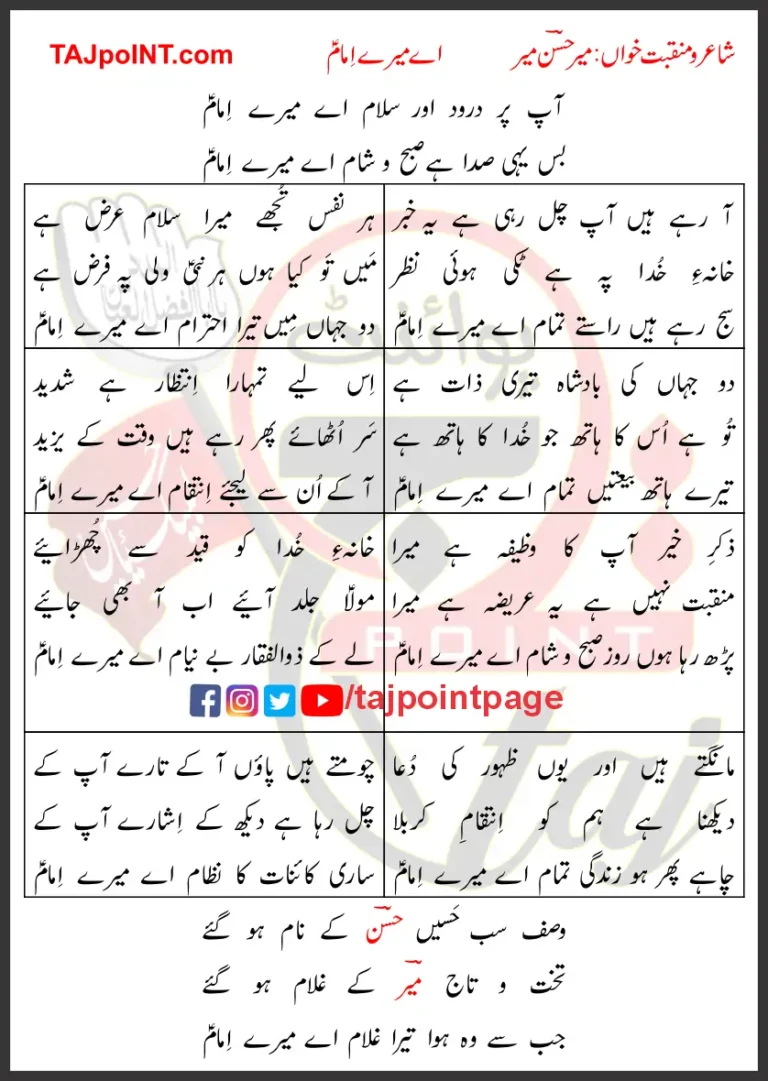 شاعر و منقبت خواں: میر حسن میر اے میرے اِمامؑ TAJpoINT.com
آپ پر درود اور سلام اے میرے اِمامؑ
بس یہی صدا ہے صبح و شام اے میرے اِمامؑ
آ رہے ہیں آپ چل رہی ہے یہ خبر
خانہءِ خُدا پہ ہے ٹکی ہوئی نظر
سج رہے ہیں راستے تمام اے میرے اِمامؑ
ہر نفس تُجھے میرا سلام عرض ہے
مَیں تَو کیا ہوں ہر نبیؑ ولی پہ فرض ہے
دو جہاں مِیں تیرا احترام اے میرے اِمامؑ
دو جہاں کی بادشاہ تیری ذات ہے
تُو ہے اُس کا ہاتھ جو خُدا کا ہاتھ ہے
تیرے ہاتھ بیعتیں تمام اے میرے اِمامؑ
اِس لیے تمہارا اِنتظار ہے شدید
سَر اُٹھائے پھر رہے ہیں وقت کے یزید
آ کے اُن سے لیجئے اِنتقام اے میرے اِمامؑ
ذکرِ خیر آپ کا وظیفہ ہے میرا
منقبت نہیں ہے یہ عریضہ ہے میرا
پڑھ رہا ہوں روز صبح و شام اے میرے اِمامؑ
خانہءِ خُدا کو قید سے چُھڑائیے
مولاؑ جلد آئیے اب آ بھی جائیے
لے کے ذوالفقار بے نیام اے میرے اِمامؑ
/tajpointpage
مانگتے ہیں اور یوں ظہور کی دُعا
دیکھنا ہے ہم کو اِنتقامِ کربلا
چاہے پھر ہو زندگی تمام اے میرے اِمامؑ
چومتے ہیں پاؤں آ کے تارے آپ کے
چل رہا ہے دیکھ کے اِشارے آپ کے
ساری کائنات کا نظام اے میرے اِمامؑ
وصف سب حَسیں حسن کے نام ہو گئے
تخت و تاج میر کے غلام ہو گئے
جب سے وہ ہوا تیرا غلام اے میرے اِمامؑ
پوائنٹ
POINT
taj